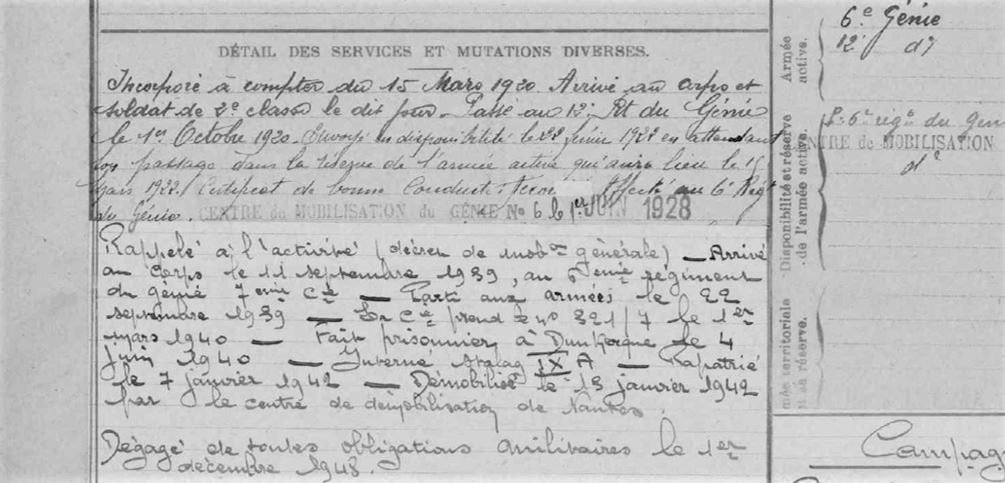 DÉTAIL DES SERVICES ET MUTATIONS DIVERSES.
Incorporé à compter du 15 Mars 1920. Arrivé au corps et
soldat de 2e classe le dit jour. Passé au 12e Rt du Génie
le 1er Octobre 1920. Envoyé en disponibilité le 22 février 1922 en attendant
son passage dans la réserve de l'armée active qui aura lieu le 15
Mars 1922. Certificat de bonne Conduite : Affecté au 6e Régt
du Génie. CENTRE de MOBILISATION du GÉNIE No 6 le 1er JUIN 1928
Rappelé à l'activité (décret de mobon générale) — Arrivé
au corps le 11 septembre 1939, au 6eme régiment
du génie 7eme Cie — Parti aux armées le 22
septembre 1939 — La Cie prend le no 321/7 le 1er
mars 1940 — Fait prisonnier à Dunkerque le 4
juin 1940 — Interné Stalag IX A — Rapatrié
le 7 janvier 1942 — Démobilisé le 13 janvier 1942
par le centre de démobilisation de Nantes.
Dégagé de toutes obligations militaires le 1er
décembre 1948.
Armée
active.
6e Génie
12e do
Disponibilité et réserve
de l'armée active.
6e régt du Génie
CENTRE de MOBILISATION
do
territorial
sa réserve.
Campag